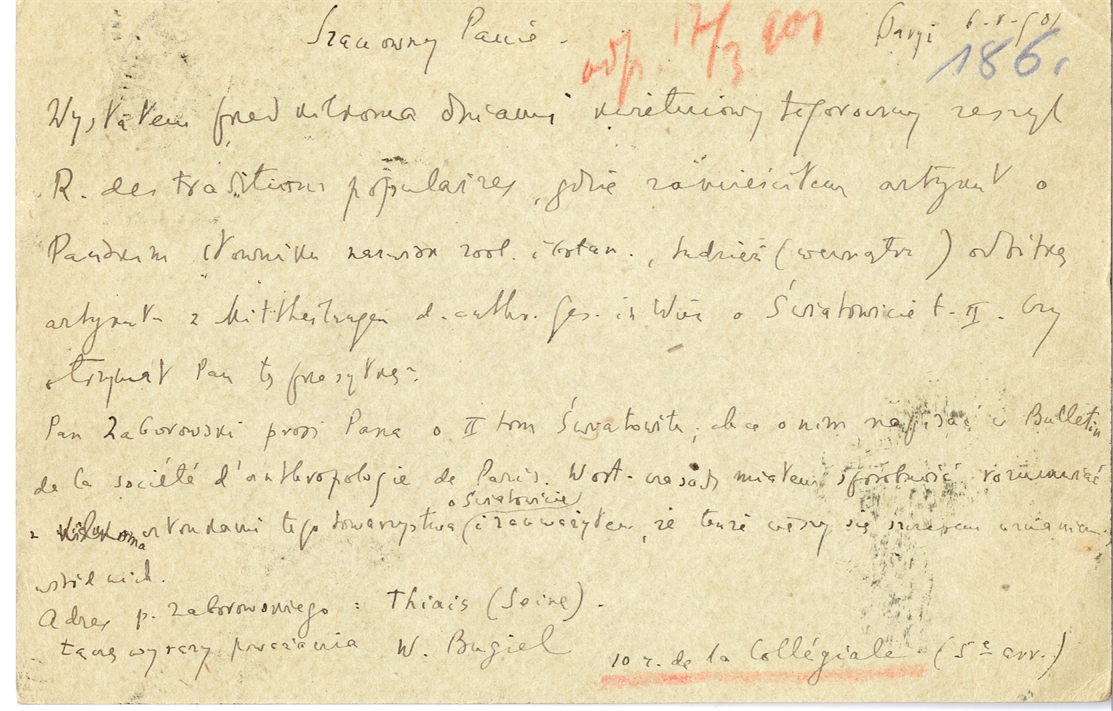 Szanowny Panie. odp. 17/3 901 Paryż
186.
Wysłałem przed kilkoma dniami kwietniowy tegoroczny zeszyt
R. des traditions populaires, gdzie zamieściłem artykuł o
Pańskim Słowniku nazwisk zool. i botan., tudzież (wewnątrz) odbitkę
artykułu z Mittheilungen d. anthr. Ges. in Wien o Światowicie t. II. Czy
otrzymał Pan tę przesyłkę?
Pan Zaborowski prosi Pana o II tom Światowita; chce o nim napisać w Bulletin
de la société d'anthropologie de Paris. miałem sposobność rozmawiać
z kilkoma członkami tego towarzystwa (o Światowicie) i zauważyłem, że tenże cieszy się uznaniem
wśród nich.
Adres p. Zaborowskiego: Thiais (Seine).
Łączę wyrazy poważania W. Bugiel 10 r. de la Collégiale (5e arr.)